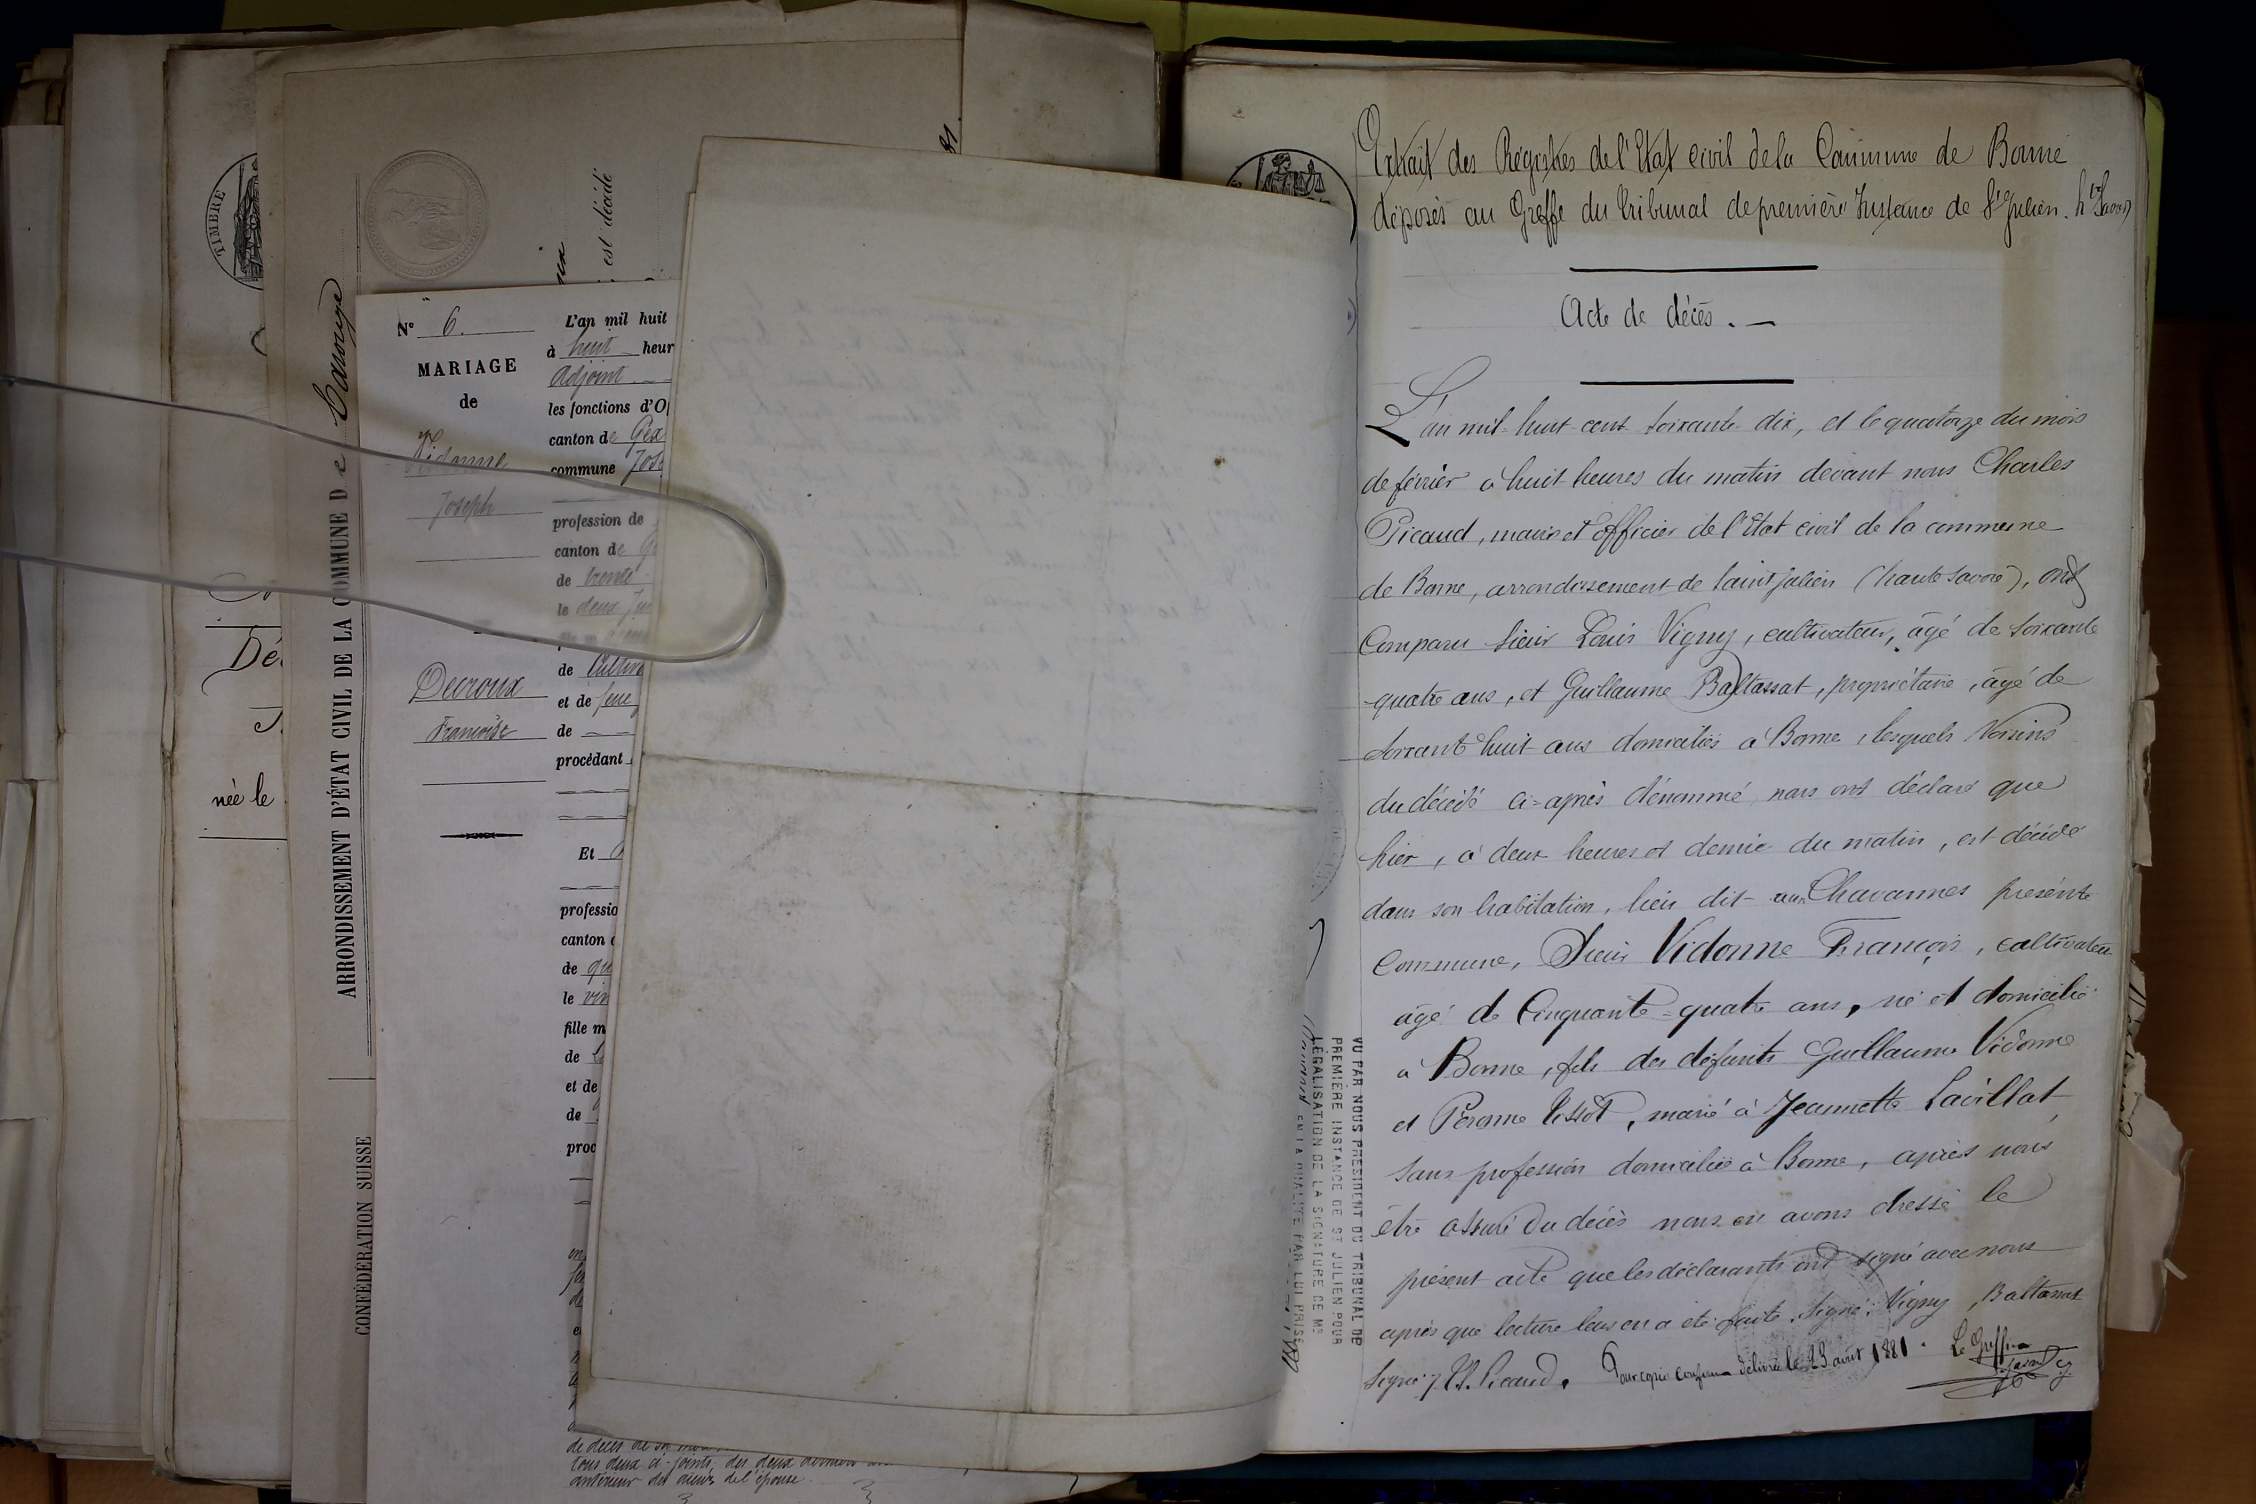 TIMBRE
Dé
née le
CONFÉDÉRATION SUISSE
ARRONDISSEMENT D'ÉTAT CIVIL DE LA COMMUNE De Carouge
est décédé
N° 6.
MARIAGE
de
Vidonne
Joseph
Decroux
Françoise
L'an mil huit
à huit heur
Adjoint
les fonctions d'O
canton de Gex
commune Jos
profession de
canton de G
de trente
le deux Ju
de Cultiva
et de feue
de
procédant
Et
professio
canton
de qu
le vin
fille m
de
et de
de
proc
tous deux ci-joints, des deux derniers
antérieur des aieux de l'épouse.
Extrait des Registres de l'Etat civil de la Commune de Bonne
déposés au Greffe du Tribunal de première Instance de St Julien. hte Savoie
Acte de décès. —
L'an mil huit cent soixante dix, et le quatorze du mois
de février à huit heures du matin devant nous Charles
Picaud, maire et officier de l'Etat civil de la commune
de Bonne, arrondissement de Saint Julien (haute Savoie), ont
Comparu Sieur Louis Vigny, cultivateur, âgé de soixante
quatre ans, et Guillaume Baltassat, propriétaire, âgé de
soixante huit ans domiciliés à Bonne, lesquels Voisins
du décédé ci-après dénommé nous ont déclaré que
hier, à deux heures et demie du matin, est décédé
dans son habitation, lieu dit aux Chavannes présente
Commune, Sieur Vidonne François, cultivateur
âgé de Cinquante-quatre ans, né et domicilié
à Bonne, fils des défunts Guillaume Vidonne
et Peronne Tissot, marié à Jeannette Lavillat
sans profession domiciliée à Bonne, après nous
être assuré du décès nous en avons dressé le
présent acte que les déclarants ont signé avec nous
après que lecture leur en a été faite. Signé: Vigny, Baltassat
Signé, Ch. Picaud. Pour copie conforme délivrée le 23 août 1881. Le Greffier
VU PAR NOUS PRESIDENT DU TRIBUNAL DE
PREMIÈRE INSTANCE DE ST JULIEN POUR
LÉGALISATION DE LA SIGNATURE DE Mr
EN LA QUALITÉ PAR LUI PRISE